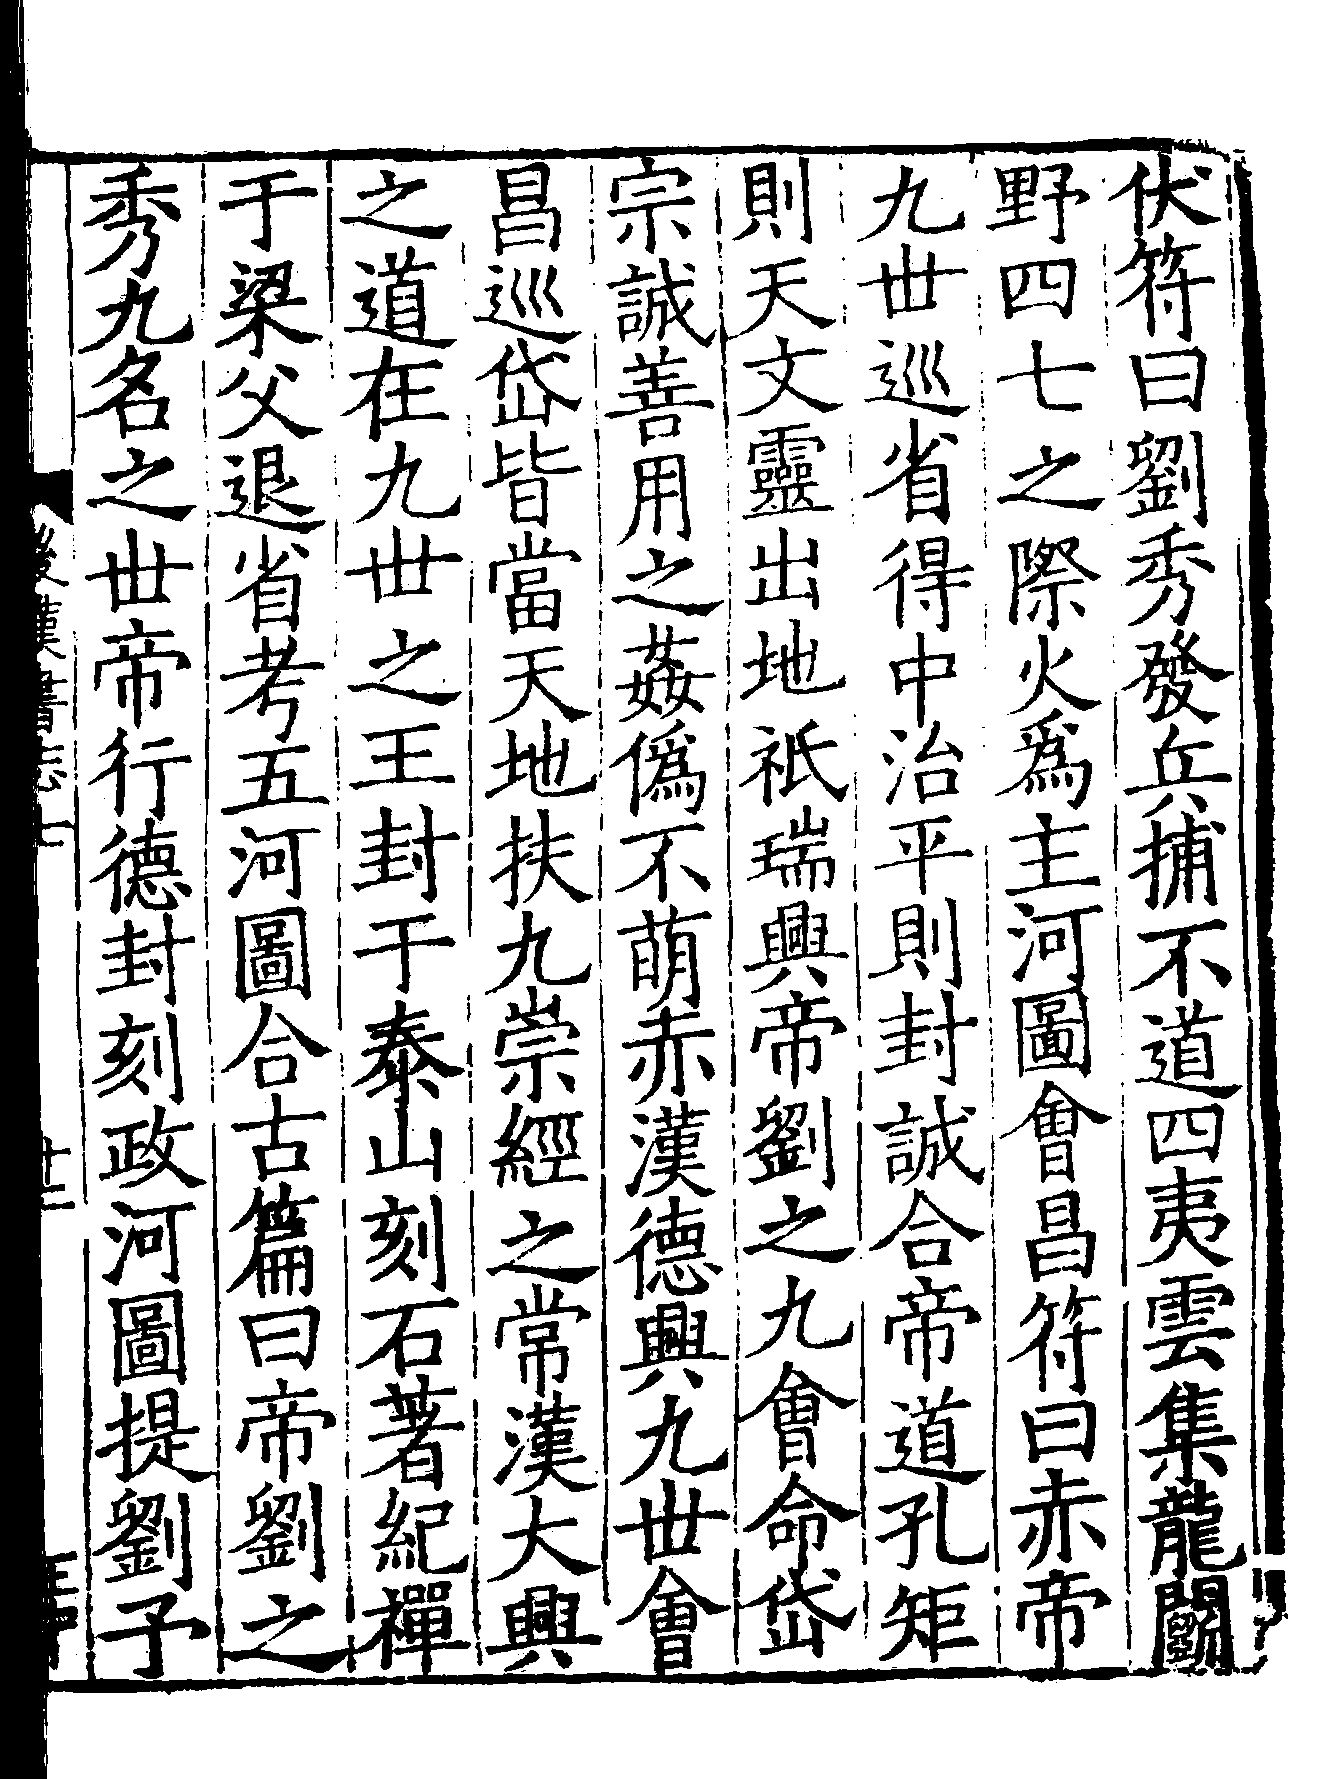 伏符曰劉秀發兵捕不道四夷雲集龍鬭
野四七之際火爲主河圖會昌符曰赤帝
九世巡省得中治平則封誠合帝道孔矩
則天文靈出地祇瑞興帝劉之九會命岱
宗誠善用之姦僞不萌赤漢德興九世會
昌巡岱皆當天地扶九崇經之常漢大興
之道在九世之王封于泰山刻石著紀禪
于梁父退省考五河圖合古篇曰帝劉之
秀九名之世帝行德封刻政河圖提劉子
後漢書志七
十二